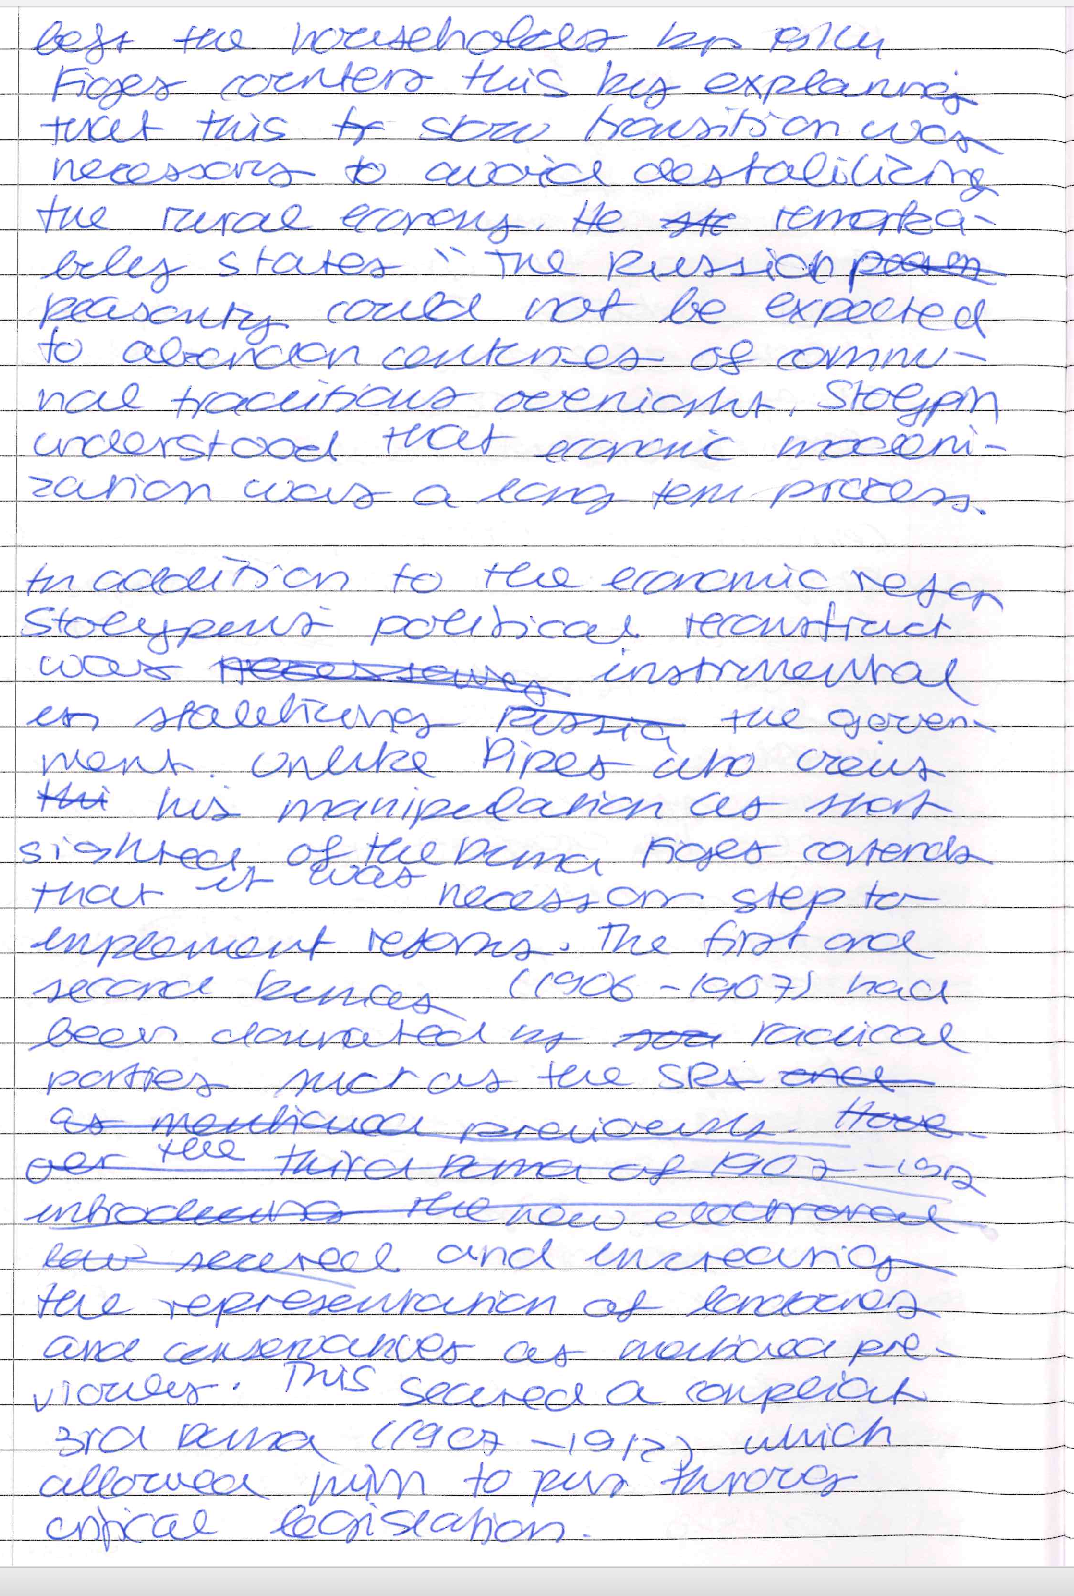 left the households by 1914
Figes counters this by explaning
that this tr slow transition was
necessary to avoid destabilizing
the rural economy. He ste remarka-
bley states " The Russian peasen
peasantry could not be expected
to abandon centuries of commu-
nal traditions overnight. Stolypin
understood that economic moderni-
zation was a long term process.
In addition to the economic refor
Stolypin's political reconstruct
was necessary instrumental
in stabilizing Russia the govern-
ment. Unlike Pipes who views
thi his manipulation as short
sighted, of the Duma Figes contends
that it was necessary step to
implement reforms. The first and
second Dumas (1906 - 1907) had
been dominated by radical
parties such as the SRs and
as mentioned previously. Howe
ver the third Duma of 1907 - 1912
introducing the new electroral
law secured and increasing
the representation of landowners
and conservatives as mentioned pre-
viously. This secured a compliant
3rd Duma (1907 - 1912) which
allowed him to pus throug
critical legislation.